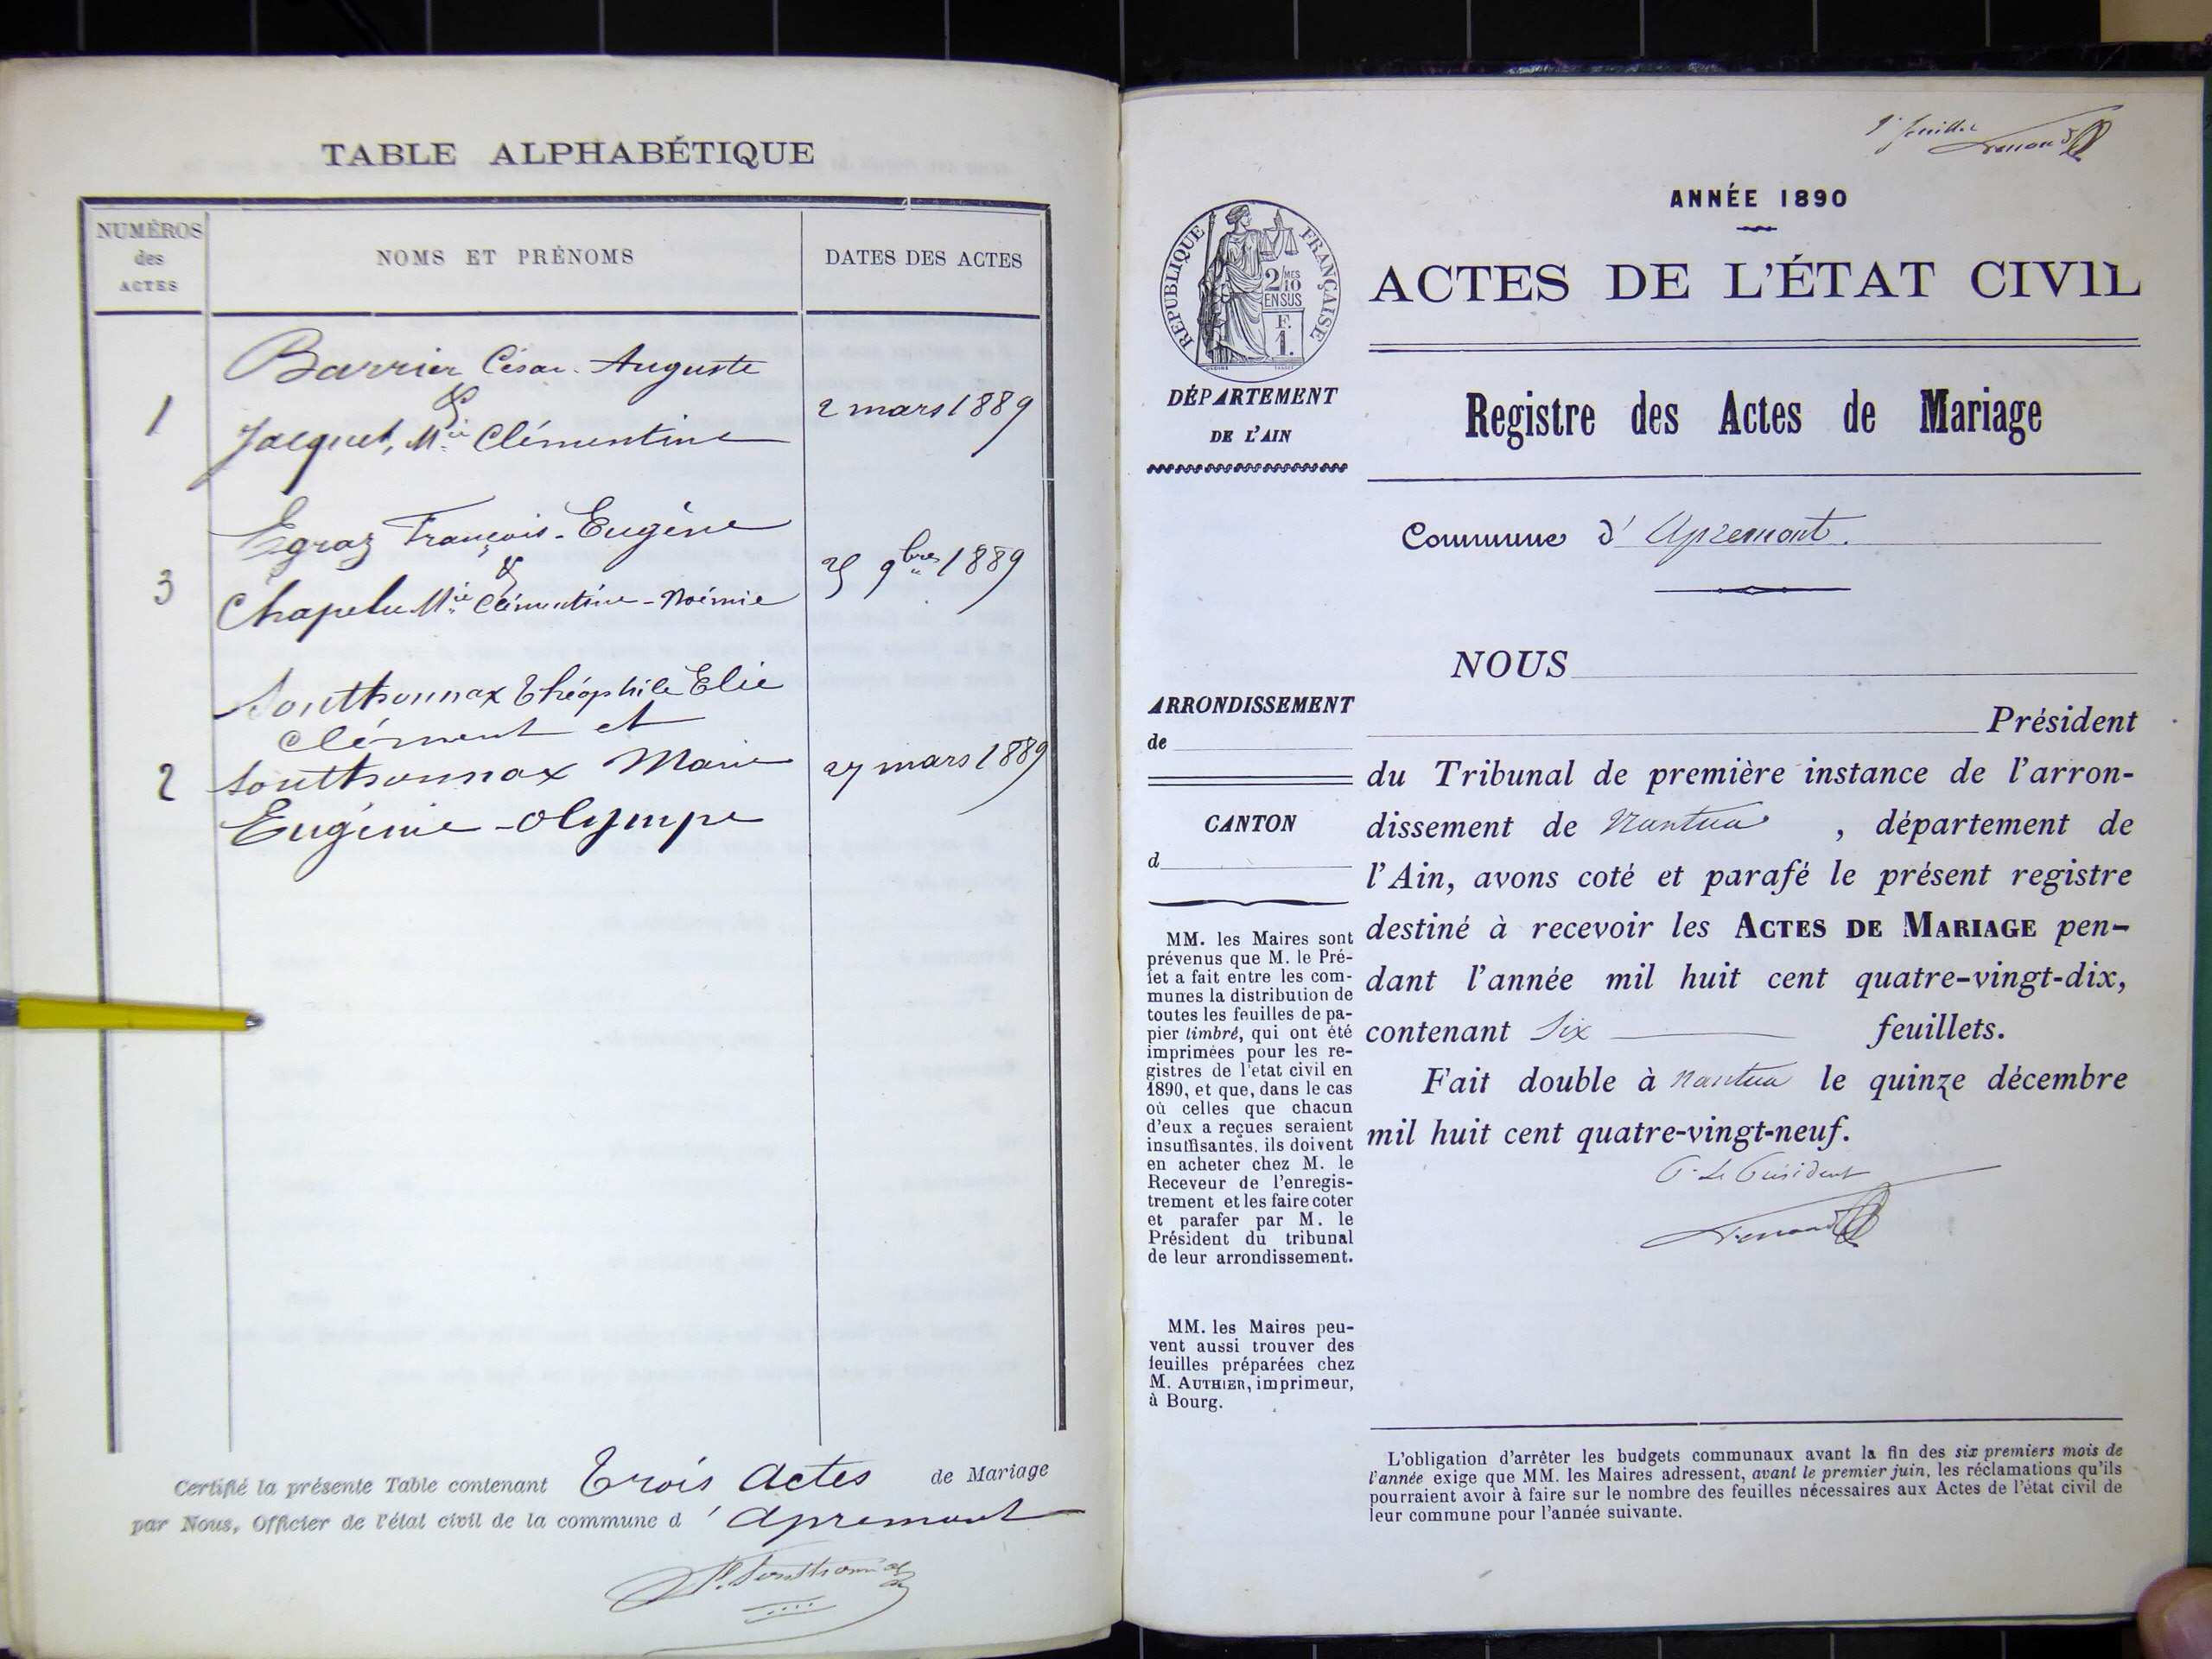 TABLE ALPHABÉTIQUE
NUMÉROS
des
ACTES
NOMS ET PRÉNOMS
DATES DES ACTES
Barrier César-Auguste
&
1
2 mars 1889
Jacquet, Mie Clémentine
Egraz François-Eugène
&
3
25 9bre 1889
Chapelu Mie Clémentine-Noémie
Sonthonnax Théophile Elie
Clément et
2
Sonthonnax Marie
27 mars 1889
Eugénie-Olympe
Certifié la présente Table contenant Trois Actes de Mariage
par Nous, Officier de l'état civil de la commune d'Apremont
Sonthonnax
1er feuillet
ANNÉE 1890
RÉPUBLIQUE FRANÇAISE
2/10 MES
EN SUS
F.
1.
ACTES DE L'ÉTAT CIVIL
DÉPARTEMENT
DE L'AIN
Registre des Actes de Mariage
Commune d'Apremont.
NOUS
ARRONDISSEMENT
de
Président
du Tribunal de première instance de l'arron-
CANTON
d
dissement de Nantua, département de
l'Ain, avons coté et parafé le présent registre
destiné à recevoir les ACTES DE MARIAGE pen-
dant l'année mil huit cent quatre-vingt-dix,
contenant Six feuillets.
Fait double à Nantua le quinze décembre
mil huit cent quatre-vingt-neuf.
P. Le Président
MM. les Maires sont
prévenus que M. le Pré-
fet a fait entre les com-
munes la distribution de
toutes les feuilles de pa-
pier timbré, qui ont été
imprimées pour les re-
gistres de l'état civil en
1890, et que, dans le cas
où celles que chacun
d'eux a reçues seraient
insuffisantes, ils doivent
en acheter chez M. le
Receveur de l'enregis-
trement et les faire coter
et parafer par M. le
Président du tribunal
de leur arrondissement.
MM. les Maires peu-
vent aussi trouver des
feuilles préparées chez
M. AUTHIER, imprimeur,
à Bourg.
L'obligation d'arrêter les budgets communaux avant la fin des six premiers mois de
l'année exige que MM. les Maires adressent, avant le premier juin, les réclamations qu'ils
pourraient avoir à faire sur le nombre des feuilles nécessaires aux Actes de l'état civil de
leur commune pour l'année suivante.